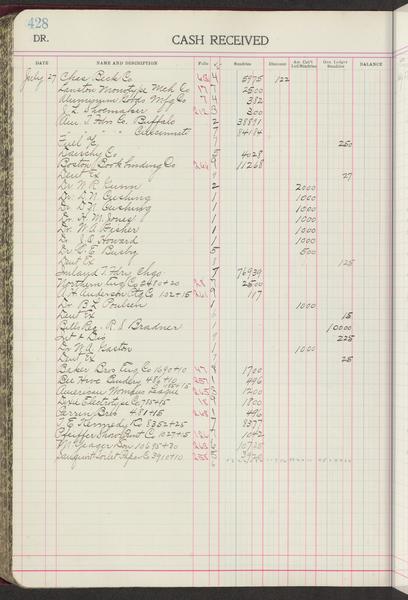 428
DR.
CASH RECEIVED
DATE NAME AND DESCRIPTION Folio Sundries Discount Gen. Ledger Sundries BALANCE
July 27 Chas Beck Co. 4 5975 122
Lanston Monotype Mch Co 17 7 2500
Aluminum Goods Mfg Co 7 4 382
J. L. Shoemaker 212 3 300
Am. T. Fdry Co. Buffalo 2 38891
" " " " Cincinnati 7 84184
Fuel 250
Co 5 4028
Boston Book binding Co 9 11268
Deut Ex 27
Dr. W. R. Gunn 2 2000
Dr. D. N. Cushing 1 1000
Dr. D. N. Cushing 1 1000
Dr. H. M. Jones 1 1000
Dr. W. A. Fisher 1 1000
Dr. J. E. Howard 1 1000
Dr. G. E. Busby 5 500
Deut Ex 125
Inland T. Fdry Chgo 7 76939
Northern Eng Co 2480+20 7 2500
A. H. Anderson Co 102+15 9 117
Dr. B. L. Poulsen 1 1000
Deut Ex 15
Bills Rec. R. S. Bradner 10000
Int & Dis 225
Dr. W. A. Gaston 1 1000
Deut Ex 25
Baker Bros Eng Co 1690+10 47 8 1700
Bee Hive Bindery 486+10 257 1 496
American Womans League 3 1200
Electrotype Co 785+15 9 1800
Perrin Bros 481+15 268 1 496
T. E. Kennedy Co 8352+25 7 8377
Pfeiffer Show Print Co 1027+15 1042
Yeager Son 10695+30 6 10725
Toilet Paper Co 3910+10 258 5